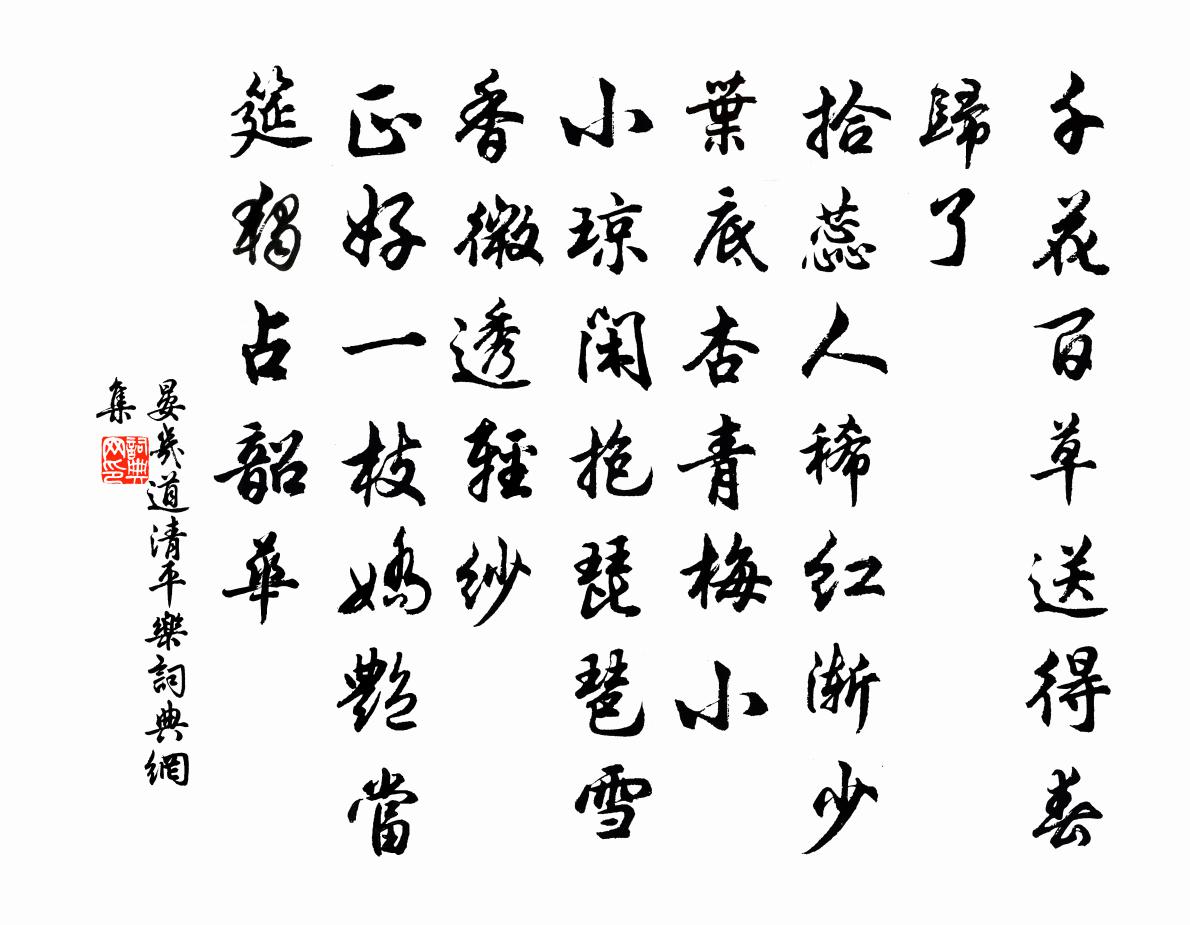 千花百草送得春
歸了
拾蕊人稀紅漸少
葉底杏青梅小
小琼閑抱琵琶雪
香微透輕紗
正好一枝嬌艷當
筵獨占韶華
晏幾道清平樂詞典網
集
詞典網印